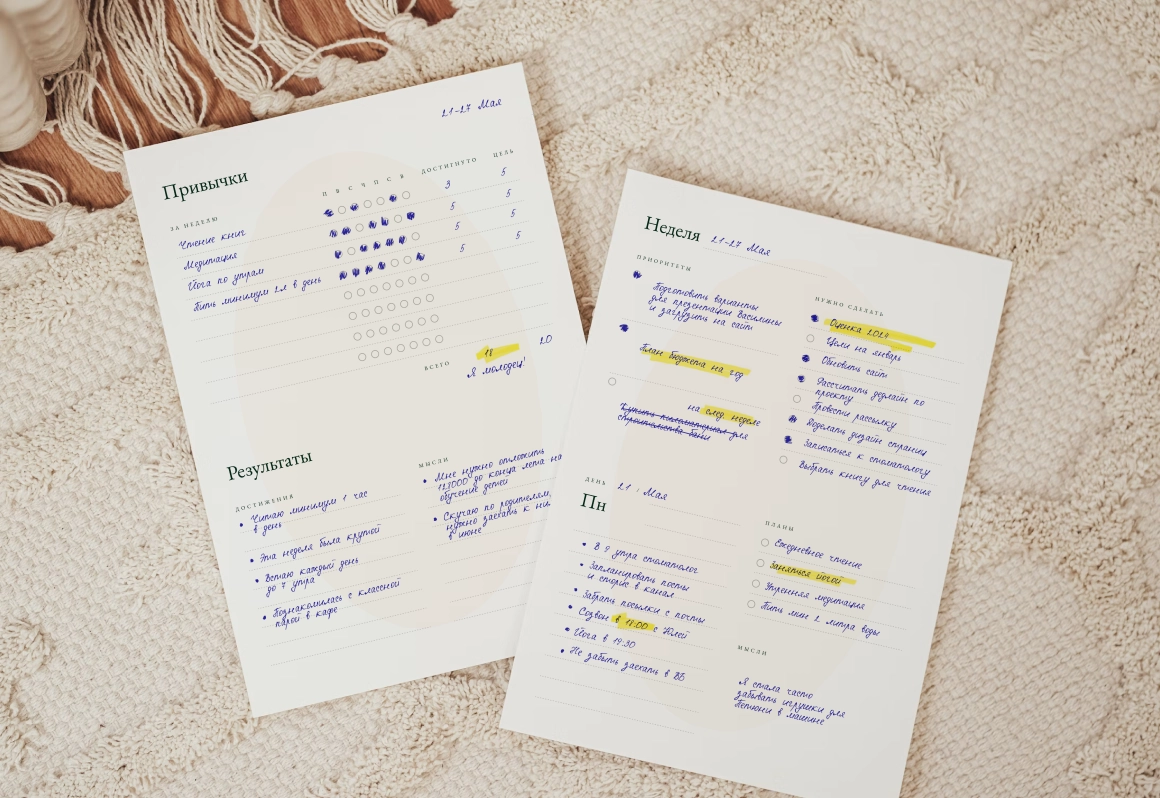 21-27 Мая
Привычки
ЗА НЕДЕЛЮ
П В С Ч П С В ДОСТИГНУТО ЦЕЛЬ
Чтение книг 3 5
Медитация 5 5
Йога по утрам 5 5
Пить минимум 2л в день 5 5
ВСЕГО 18 20
Я молодец!
Результаты
ДОСТИЖЕНИЯ
• Читаю минимум 1 час
в день
• Эта неделя была крутой
• Встаю каждый день
до 7 утра
• Познакомилась с классной
парой в кафе
МЫСЛИ
• Мне нужно отложить
128000 до конца лета на
обучение детей
• Скучаю по родителям,
нужно заехать к ним
в июне
Неделя 21-27 Мая
ПРИОРИТЕТЫ
Подготовить варианты
для презентации Василины
и загрузить на сайт
План бюджета на год
на след. неделе
Купить пиломатериал для
строительства бани
НУЖНО СДЕЛАТЬ
Оценка 2024
Цели на январь
Обновить сайт
Рассчитать дедлайн по
проекту
Провести рассылку
Доделать дизайн страниц
Записаться к стоматологу
Выбрать книгу для чтения
ДЕНЬ 21 Мая
Пн
• В 9 утра стоматолог
• Запланировать посты
и сторис в канал
• Забрать посылки с почты
• Созвон в 18.00 с Юлей
• Йога в 19:30
• Не забыть заехать в ВБ
ПЛАНЫ
Ежедневное чтение
Заняться йогой
Утренняя медитация
Пить мин 2 литра воды
МЫСЛИ
Я стала часто
забывать игрушки для
Петюни в машине